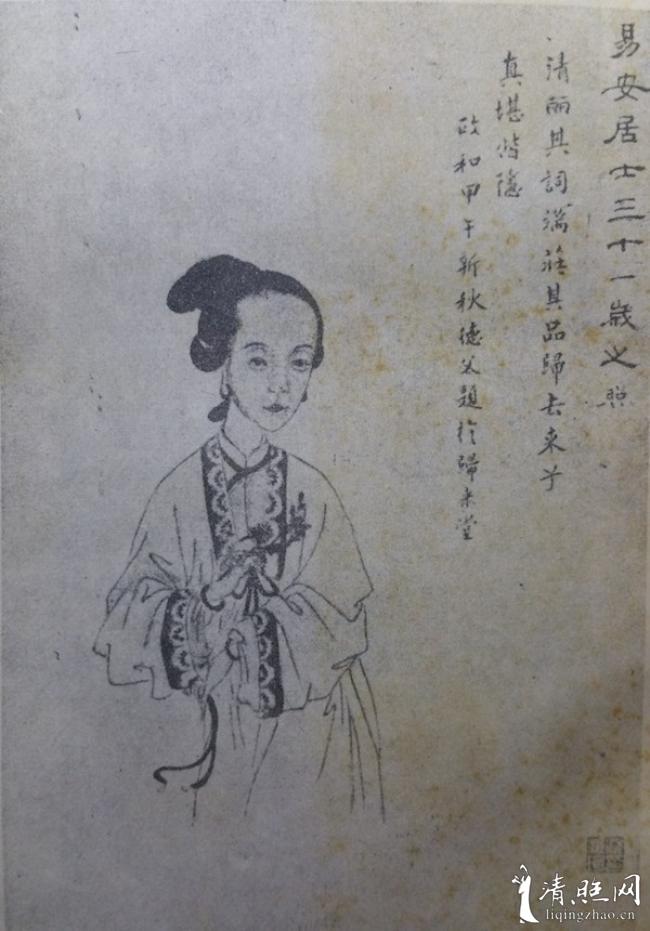 易安居士三十一歲之照
清丽其詞端莊其品歸去来兮
真堪偕隱
政和甲午新秋德父題於歸来堂
清照网
liqingzhao.cn